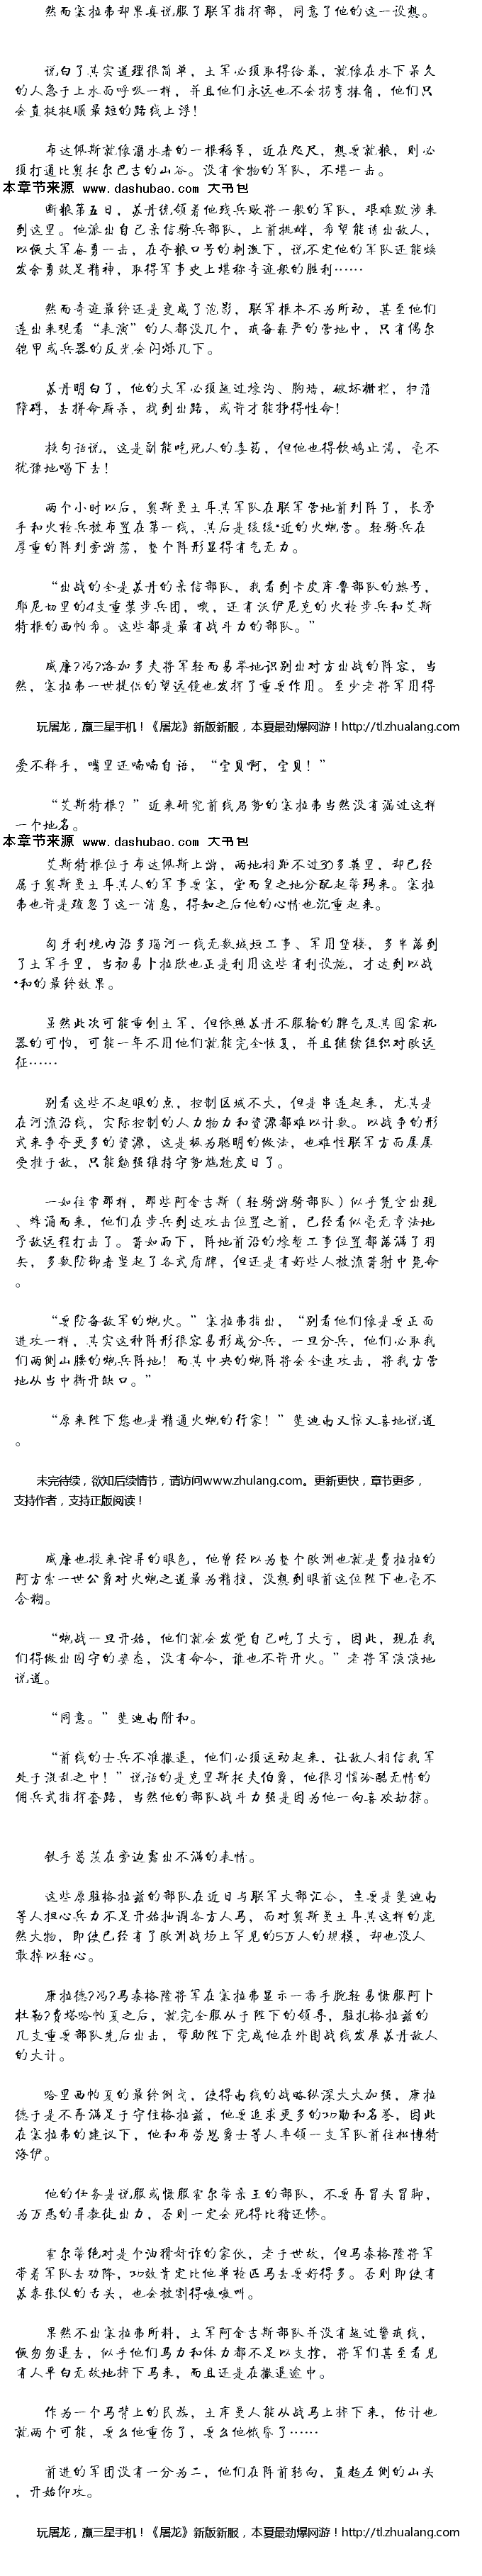 然而塞拉弗却果真说服了联军指挥部，同意了他的这一设想。
说白了其实道理很简单，土军必须取得给养，就像在水下呆久
的人急于上水面呼吸一样，并且他们永远也不会拐弯抹角，他们只
会直挺挺顺最短的路线上浮！
布达佩斯就像溺水者的一根稻草，近在咫尺，想要就粮，则必
须打通比奥托尔巴吉的山谷。没有食物的军队，不堪一击。
本章节来源 www.dashubao.com 大书包
断粮第五日，苏丹统领着他残兵败将一般的军队，艰难跋涉来
到这里。他派出自己亲信骑兵部队，上前挑衅，希望能诱出敌人，
以便大军奋勇一击，在夺粮口号的刺激下，说不定他的军队还能焕
发余勇鼓足精神，取得军事史上堪称奇迹般的胜利……
然而奇迹最终还是变成了泡影，联军根本不为所动，甚至他们
连出来观看“表演”的人都没几个，戒备森严的营地中，只有偶尔
铠甲或兵器的反光会闪烁几下。
苏丹明白了，他的大军必须越过壕沟、胸墙，破坏栅栏，扫清
障碍，去拼命厮杀，找到出路，或许才能挣得性命！
换句话说，这是副能吃死人的毒药，但他也得饮鸩止渴，毫不
犹豫地喝下去！
两个小时以后，奥斯曼土耳其军队在联军营地前列阵了，长矛
手和火枪兵被布置在第一线，其后是缓缓*近的火炮营。轻骑兵在
厚重的阵列旁游荡，整个阵形显得有气无力。
“出战的全是苏丹的亲信部队，我看到卡皮库鲁部队的旗号，
耶尼切里的4支重装步兵团，哦，还有沃伊尼克的火枪步兵和艾斯
特根的西帕希。这些都是最有战斗力的部队。”
威廉?冯?洛加多夫将军轻而易举地识别出对方出战的阵容，当
然，塞拉弗一世提供的望远镜也发挥了重要作用。至少老将军用得
玩屠龙，赢三星手机！《屠龙》新版新服，本夏最劲爆网游！http://tl.zhulang.com
爱不释手，嘴里还喃喃自语，“宝贝啊，宝贝！”
“艾斯特根？”近来研究前线局势的塞拉弗当然没有漏过这样
一个地名。
本章节来源 www.dashubao.com 大书包
艾斯特根位于布达佩斯上游，两地相距不过30多英里，却已经
属于奥斯曼土耳其人的军事要塞，堂而皇之地分配起蒂玛来。塞拉
弗也许是疏忽了这一消息，得知之后他的心情也沉重起来。
匈牙利境内沿多瑙河一线无数城垣工事、军用堡楼，多半落到
了土军手里，当初易卜拉欣也正是利用这些有利设施，才达到以战
*和的最终效果。
虽然此次可能重创土军，但依照苏丹不服输的脾气及其国家机
器的可怕，可能一年不用他们就能完全恢复，并且继续组织对欧远
征……
别看这些不起眼的点，控制区域不大，但是串连起来，尤其是
在河流沿线，实际控制的人力物力和资源都难以计数。以战争的形
式来争夺更多的资源，这是极为聪明的做法，也难怪联军方面屡屡
受挫于敌，只能勉强维持守势尴尬度日了。
一如往常那样，那些阿金吉斯（轻骑游骑部队）似乎凭空出现
、蜂涌而来，他们在步兵到达攻击位置之前，已经看似毫无章法地
予敌远程打击了。箭如雨下，阵地前沿的壕堑工事位置都落满了羽
矢，多数防御者竖起了各式盾牌，但还是有好些人被流箭射中毙命
。
“要防备敌军的炮火。”塞拉弗指出，“别看他们像是要正面
进攻一样，其实这种阵形很容易形成分兵，一旦分兵，他们必取我
们两侧山腰的炮兵阵地！而其中央的炮阵将会全速攻击，将我方营
地从当中撕开缺口。”
“原来陛下您也是精通火炮的行家！”斐迪南又惊又喜地说道
。
未完待续，欲知后续情节，请访问www.zhulang.com。更新更快，章节更多，
支持作者，支持正版阅读！
威廉也投来诧异的眼色，他曾经以为整个欧洲也就是费拉拉的
阿方索一世公爵对火炮之道最为精擅，没想到眼前这位陛下也毫不
含糊。
“炮战一旦开始，他们就会发觉自己吃了大亏，因此，现在我
们得做出固守的姿态，没有命令，谁也不许开火。”老将军淡淡地
说道。
“同意。”斐迪南附和。
“前线的士兵不准撤退，他们必须运动起来，让敌人相信我军
处于混乱之中！”说话的是克里斯托夫伯爵，他很习惯冷酷无情的
佣兵式指挥套路，当然他的部队战斗力强是因为他一向喜欢劫掠。
铁手葛茨在旁边露出不满的表情。
这些原驻格拉兹的部队在近日与联军大部汇合，主要是斐迪南
等人担心兵力不足开始抽调各方人马，而对奥斯曼土耳其这样的庞
然大物，即使已经有了欧洲战场上罕见的5万人的规模，却也没人
敢掉以轻心。
康拉德?冯?马泰格隆将军在塞拉弗显示一番手腕轻易慑服阿卜
杜勒?费塔哈帕夏之后，就完全服从于陛下的领导，驻扎格拉兹的
几支重要部队先后出击，帮助陛下完成他在外围战线发展苏丹敌人
的大计。
哈里西帕夏的最终倒戈，使得南线的战略纵深大大加强，康拉
德于是不再满足于守住格拉兹，他要追求更多的功勋和名誉，因此
在塞拉弗的建议下，他和布劳恩爵士等人率领一支军队前往松博特
海伊。
他的任务是说服或慑服霍尔蒂亲王的部队，不要再冒头冒脚，
为万恶的异教徒出力，否则一定会死得比猪还惨。
霍尔蒂绝对是个油猾奸诈的家伙，老于世故，但马泰格隆将军
带着军队去劝降，功效肯定比他单枪匹马去要好得多。否则即使有
苏秦张仪的舌头，也会被割得嗷嗷叫。
果然不出塞拉弗所料，土军阿金吉斯部队并没有越过警戒线，
便匆匆退去，似乎他们马力和体力都不足以支撑，将军们甚至看见
有人平白无故地摔下马来，而且还是在撤退途中。
作为一个马背上的民族，土库曼人能从战马上摔下来，估计也
就两个可能，要么他重伤了，要么他饿昏了……
前进的军团没有一分为二，他们在阵前转向，直趋左侧的山头
，开始仰攻。
玩屠龙，赢三星手机！《屠龙》新版新服，本夏最劲爆网游！http://tl.zhulang.com